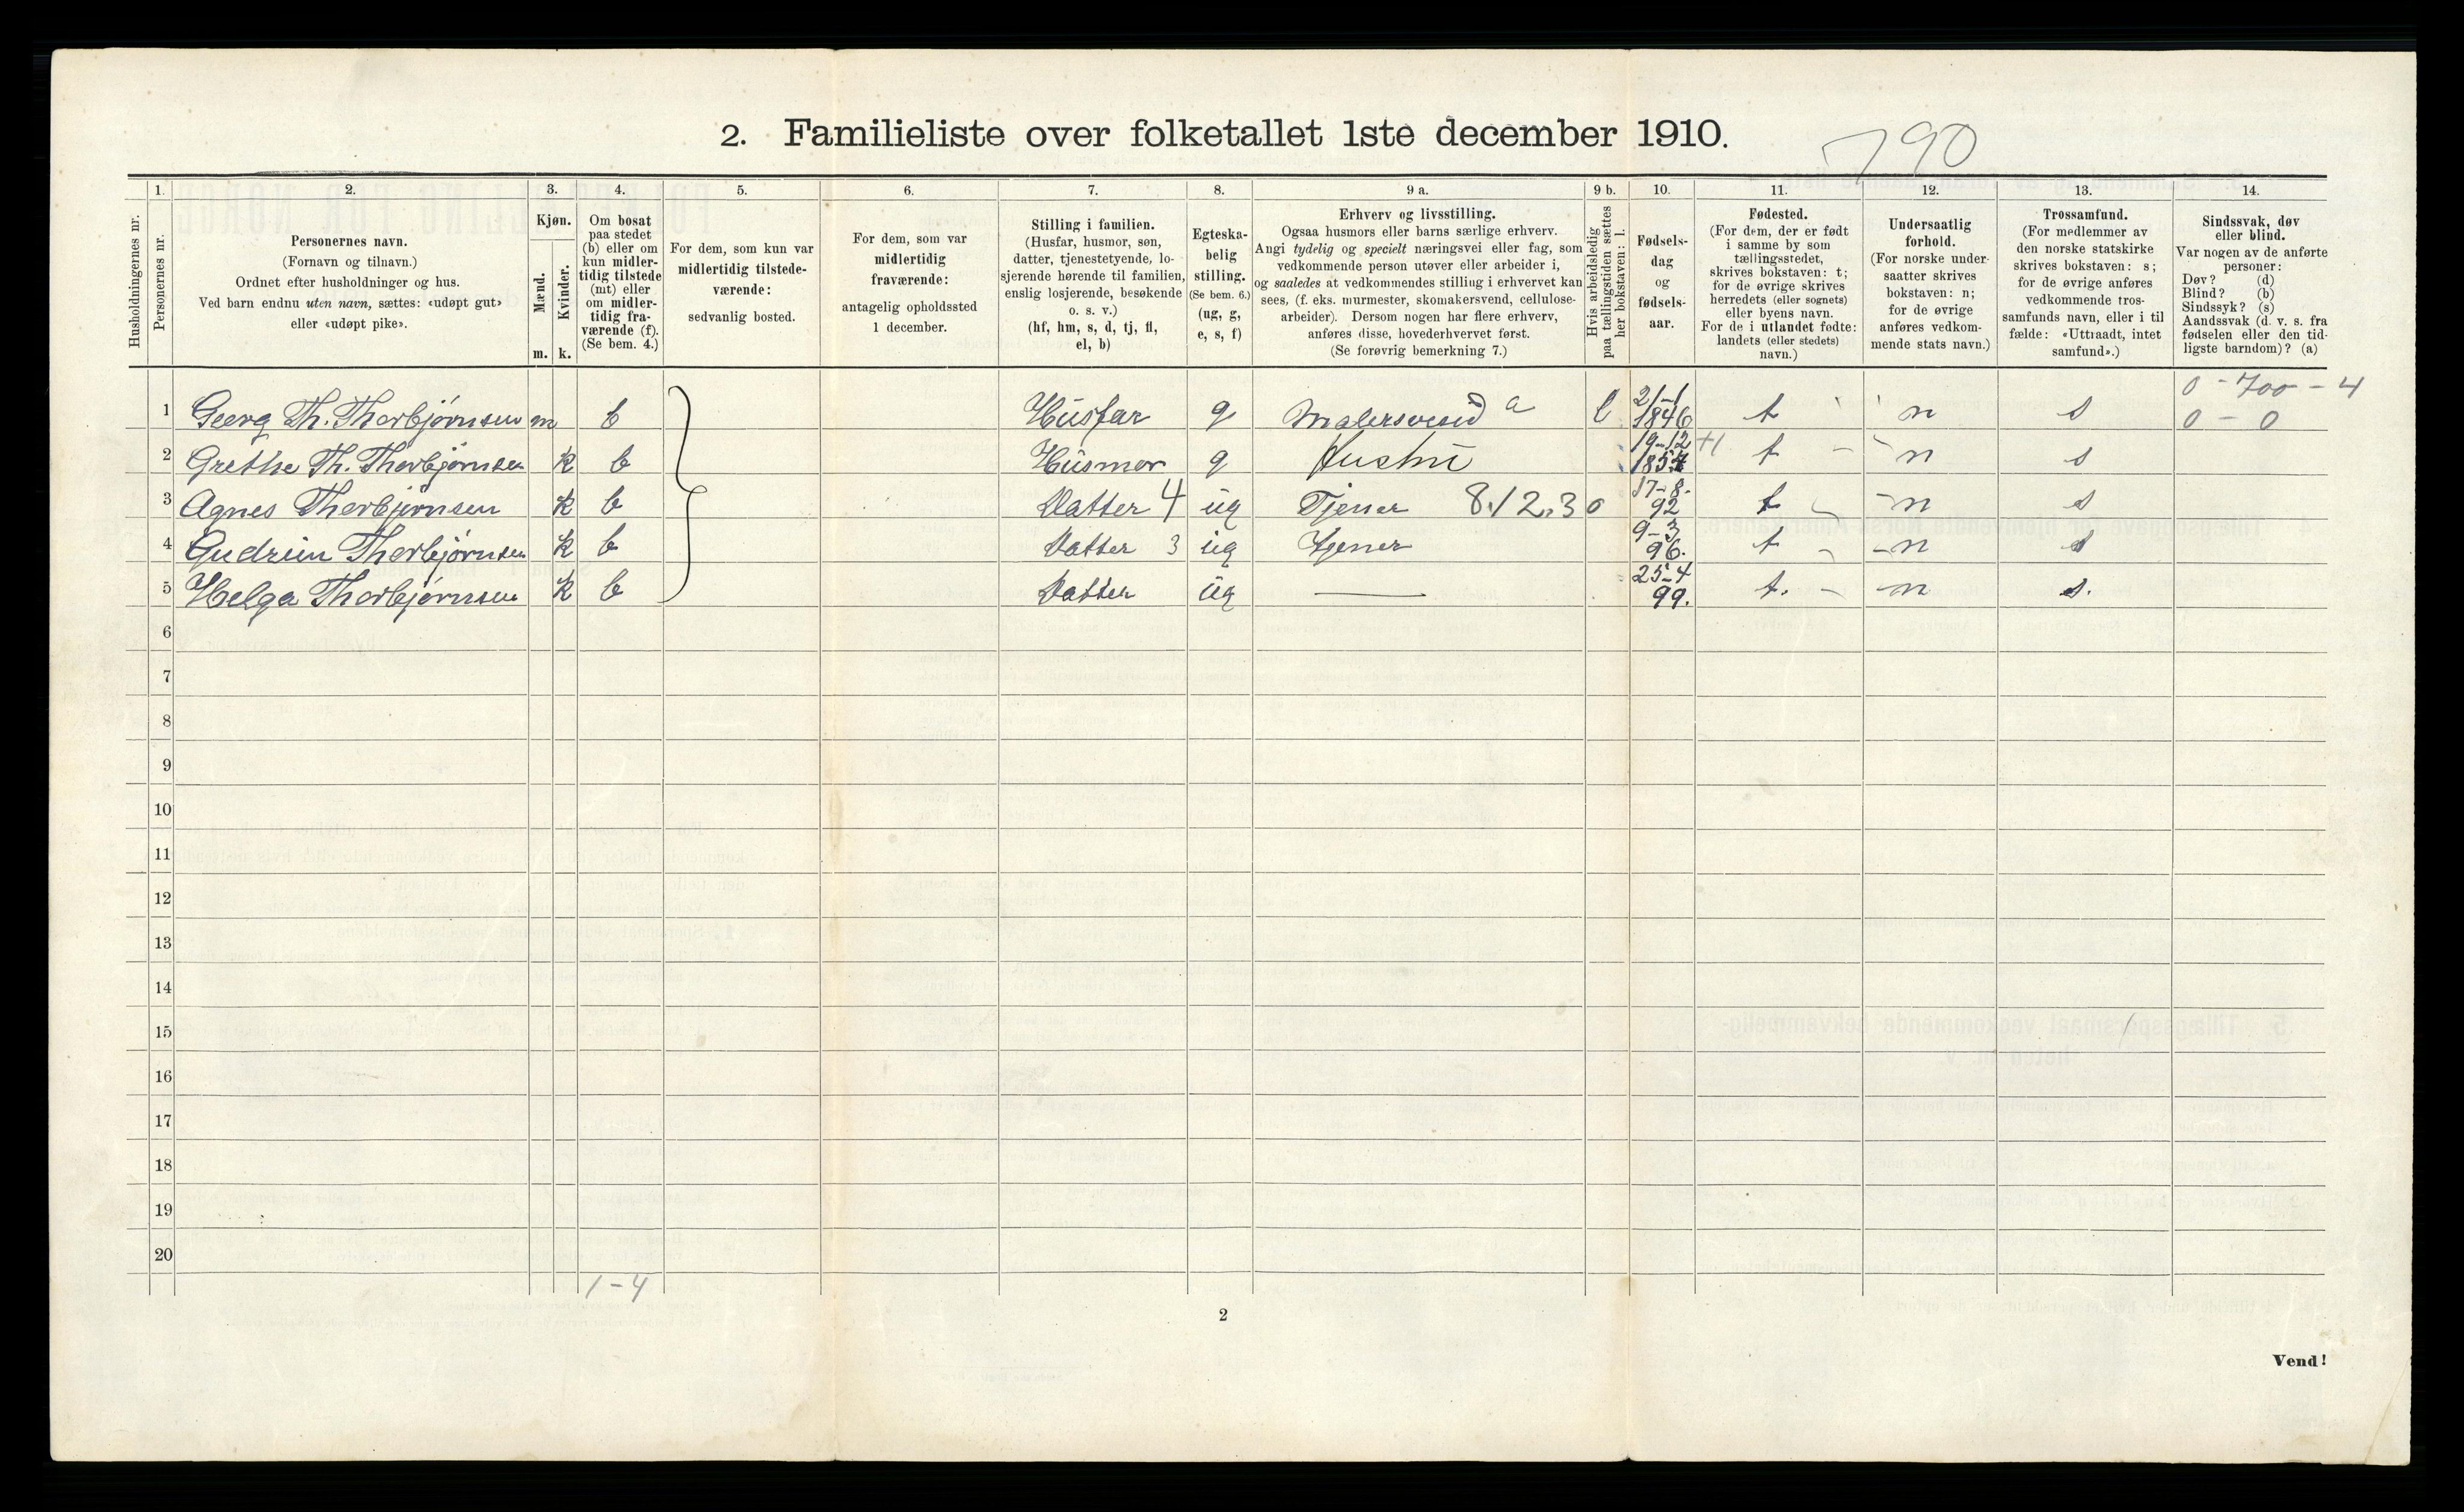 2. Familieliste over folketallet 1ste december 1910.
790
Husholdningernes nr.
1.
Personernes nr.
2.
Personernes navn.
(Fornavn og tilnavn.)
Ordnet efter husholdninger og hus.
Ved barn endnu uten navn, sættes: «udøpt gut»
eller «udøpt pike».
3.
Kjøn.
Mænd.
Kvinder.
m. k.
4.
Om bosat
paa stedet
(b) eller om
kun midler-
tidig tilstede
(mt) eller
om midler-
tidig fra-
værende (f).
(Se bem. 4.)
5.
For dem, som kun var
midlertidig tilstede-
værende:
sedvanlig bosted.
6.
For dem, som var
midlertidig
fraværende:
antagelig opholdssted
1 december.
7.
Stilling i familien.
(Husfar, husmor, søn,
datter, tjenestetyende, lo-
sjerende hørende til familien,
enslig losjerende, besøkende
o. s. v.)
(hf, hm, s, d, tj, fl,
el, b)
8.
Egteska-
belig
stilling.
(Se bem. 6.)
(ug, g,
e, s, f)
9 a.
Erhverv og livsstilling.
Ogsaa husmors eller barns særlige erhverv.
Angi tydelig og specielt næringsvei eller fag, som
vedkommende person utøver eller arbeider i,
og saaledes at vedkommendes stilling i erhvervet kan
sees, (f. eks. murmester, skomakersvend, cellulose-
arbeider). Dersom nogen har flere erhverv,
anføres disse, hovederhvervet først.
(Se forøvrig bemerkning 7.)
9 b.
Hvis arbeidsledig
paa tællingstiden sættes
her bokstaven: l.
10.
Fødsels-
dag
og
fødsels-
aar.
11.
Fødested.
(For dem, der er født
i samme by som
tællingsstedet,
skrives bokstaven: t;
for de øvrige skrives
herredets (eller sognets)
eller byens navn.
For de i utlandet fødte:
landets (eller stedets)
navn.)
12.
Undersaatlig
forhold.
(For norske under-
saatter skrives
bokstaven: n;
for de øvrige
anføres vedkom-
mende stats navn.)
13.
Trossamfund.
(For medlemmer av
den norske statskirke
skrives bokstaven: s;
for de øvrige anføres
vedkommende tros-
samfunds navn, eller i til
fælde: «Uttraadt, intet
samfund».)
14.
Sindssvak, døv
eller blind.
Var nogen av de anførte
personer:
Døv? (d)
Blind? (b)
Sindssyk? (s)
Aandssvak (d. v. s. fra
fødselen eller den tid-
ligste barndom)? (a)
0 - 700 - 4
1 Georg Th. Thorbjørnsen m b Husfar g Malersvend a l 21-1 1846 t n s 0 - 0
2 Grethe Th. Thorbjørnsen k b Husmor g Hustru 19-12 1854 +1 t n s
3 Agnes Thorbjørnsen k b Datter 4 ug Tjener 8.12.30 17-8- 92 t n s
4 Gudrun Thorbjørnsen k b Datter 3 ug Tjener 9-3 96. t n s
5 Helga Thorbjørnsen k b Datter ug — 25-4 99. t. n s.
6
7
8
9
10
11
12
13
14
15
16
17
18
19
20
1-4
2
Vend!